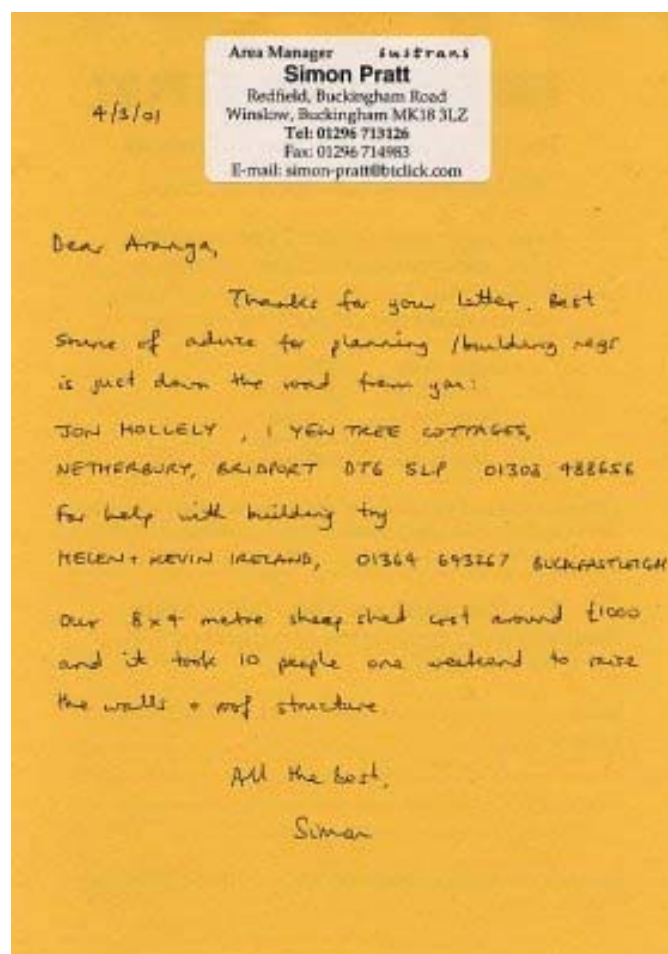 Area Manager sustrans
Simon Pratt
Redfield, Buckingham Road
Winslow, Buckingham MK18 3LZ
Tel: 01296 713126
Fax: 01296 714983
E-mail: simon-pratt@btclick.com
4/3/01
Dear Aranga,
Thanks for your letter. Best
source of advice for planning /building regs
is just down the road from you:
JON HOLLELY, 1 YEW TREE COTTAGES,
NETHERBURY, BRIDPORT DT6 5LP 01308 488656
For help with building try
HELEN + KEVIN IRELAND, 01364 643267 BUCKFASTLEIGH
Our 8x4 metre sheep shed cost around £1000
and it took 10 people one weekend to raise
the walls + roof structure.
All the best,
Simon